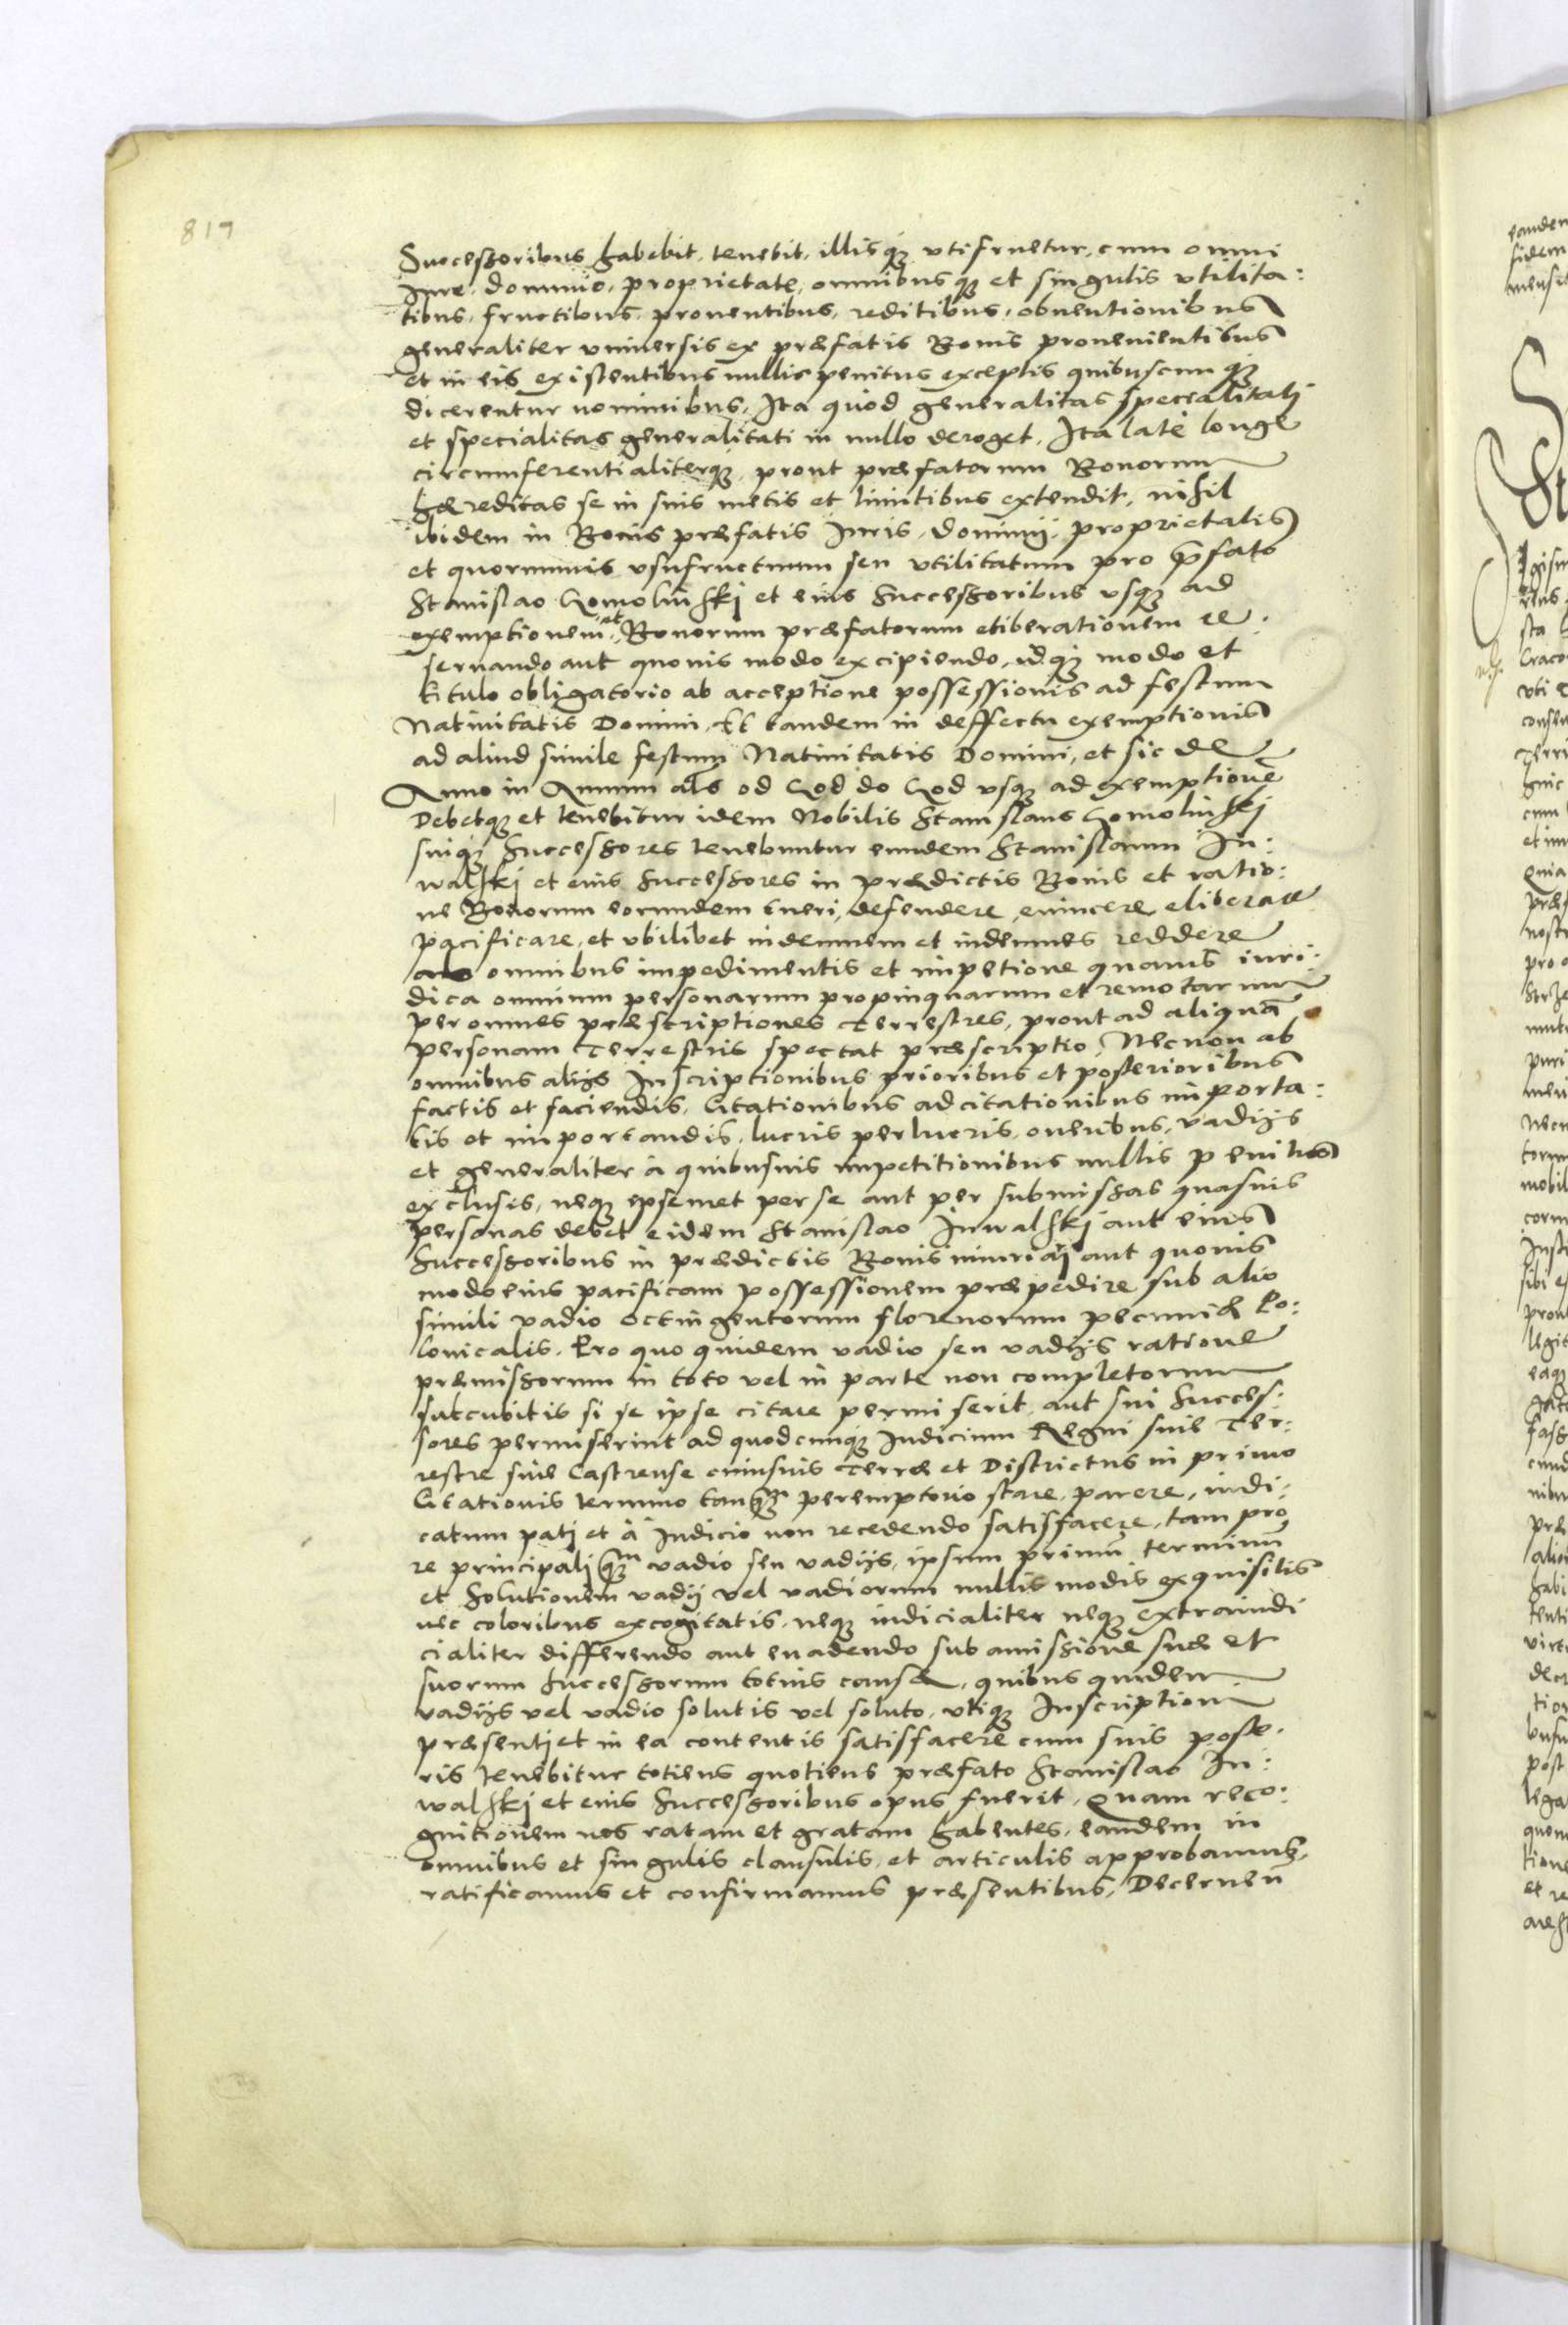 817
Successoribus habebit, tenebit, illisq₃ vtifruetur, cum omni
Iure, dominio, proprietate, omnibusq₃ et singulis vtilita:
tibus, fructibus, prouentibus, reditibus, obuentionibus
generaliter vniuersis ex præfatis Bonis prouenientibus
et in eis existentibus nullis penitus exceptis quibuscunq₃
dicerentur nominibus, Ita quod generalitas specialitatj
et specialitas generalitati in nullo deroget, Ita latè longè
circumferentialiterq₃, prout præfatorum Bonorum
hæreditas se in suis metis et limitibus extendit, nihil
ibidem in Bonis præfatis Iuris, dominij, proprietatis
et quorumuis vsufructuum seu vtilitatum pro p̄fato
Stanislao Gomolinskj et eius Successoribus vsq₃ ad
exemptionem et Bonorum præfatorum eliberationem re:
seruando aut quouis modo excipiendo, idq₃ modo et
titulo obligatorio ab acceptione possessionis ad festum
Natiuitatis Domini, Et tandem in deffectu exemptionis
ad aliud simile festum Natiuitatis Domini, et sic de
Anno in Annum als od God do God vsq₃ ad exemptionē
Debetq₃ et tenebitur idem Nobilis Stanislaus Gomolinskj
suiq₃ Successores tenebuntur eundem Stanislaum In:
walskj et eius Successores in prædictis Bonis et ratio:
ne Bonorum eorundem tueri, defendere, euincere, eliberare
pacificare, et vbilibet indemnem et indemnes reddere
omnibus impedimentis et impetione quauis iuri:
dica omnium personarum propinquarum et remotarum
per omnes præscriptiones Terrestres, prout ad aliquā
personam Terrestris spectat præscriptio, Nec non ab
omnibus alijs Inscriptionibus prioribus et posterioribus
factis et faciendis, Citationibus adcitationibus importa:
tis et importandis, lucris perlucris, oneribus, vadijs
et generaliter à quibusuis impetitionibus nullis penitus
exclusis, neq₃ ipsemet per se aut per submissas quasuis
personas debet eidem Stanislao Inwalskj aut eius
Successoribus in prædictis Bonis iniuriarj aut quouis
modo eius pacificam possessionem præpedire sub alio
simili vadio octingentorum florenorum pecuniæ Po:
lonicalis. Pro quo quidem vadio seu vadijs ratione
præmissorum in toto vel in parte non completorum
succubitis si se ipse citare permiserit, aut sui Succes:
sores permiserint ad quodcunq₃ Iudicium Regni siue Ter:
restre siue Castrense cuiusuis Terræ et Districtus in primo
Citationis termino tanq̄ peremptorio stare, parere, iudi:
catum patj et à Iudicio non recedendo satisfacere, tam pro
re principalj q̄ vadio seu vadijs, ipsum primū terminū
et solutionem vadij vel vadiorum nullis modis exquisitis
nec coloribus excogitatis, neq₃ iudicialiter neq₃ extraiudi
cialiter differendo aut euadendo sub amissione suæ et
suorum Successorum totius causæ, quibus quidem
vadijs vel vadio solutis vel soluto, vtiq₃ Inscriptioni
præsentj et in ea contentis satisfacere cum suis poste:
ris tenebitur totiens quotiens præfato Stanislao In:
walskj et eius Successoribus opus fuerit, Quam reco:
gnitionem nos ratam et gratam habentes, eandem in
omnibus et singulis clausulis, et articulis approbamus,
ratificamus et confirmamus præsentibus, Decernen̄